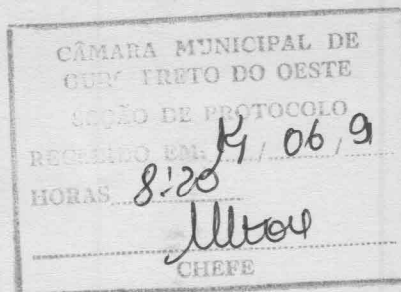 CÂMARA MUNICIPAL DE
OURO PRETO DO OESTE
SECÇÃO DE PROTOCOLO
RECEBIDO EM: 14 / 06 / 91
HORAS 8:20
CHEFE